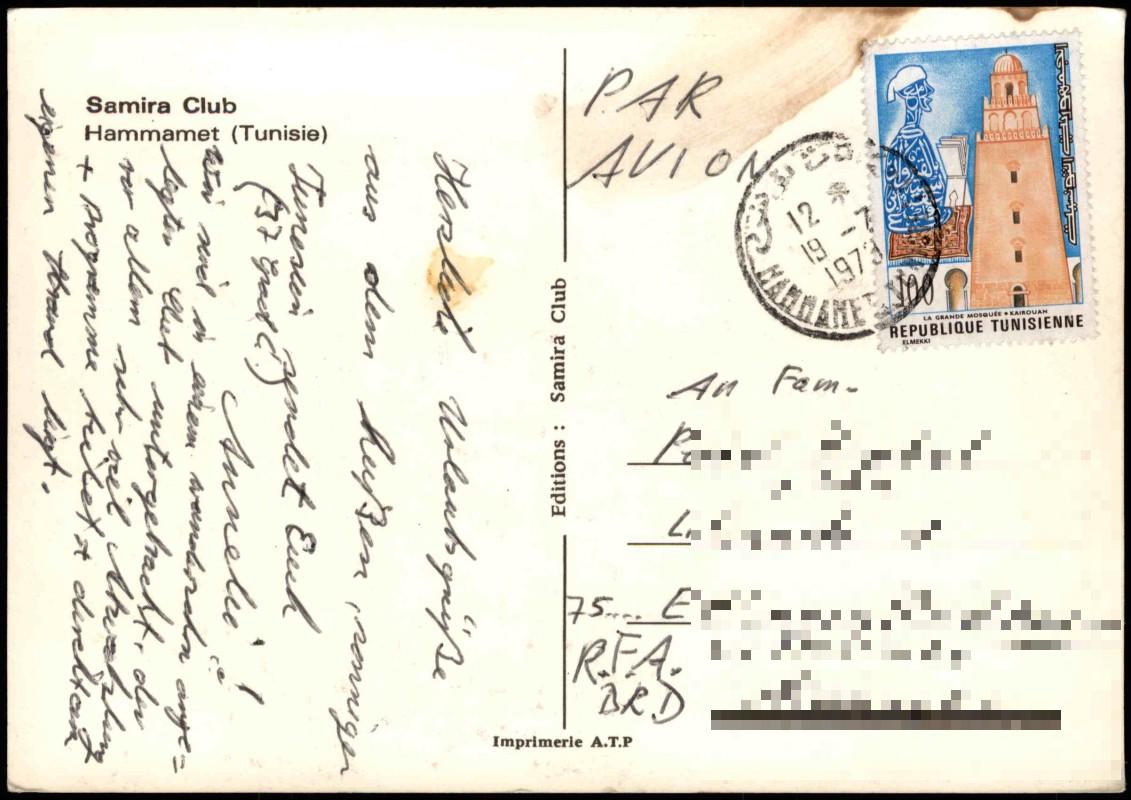 Samira Club
Hammamet (Tunisie)
Herzliche Urlaubsgrüße
aus dem heißen, sonnigen
Tunesien sendet Euch
(37 Grad!)
Annelie!
Wir sind in einem wunderschön ange=
legten Club untergebracht, der
vor allem sehr viel Abwechslung
+ Programme bietet + direkt am
eigenen Strand liegt.
Editions : Samira Club
Imprimerie A.T.P
PAR
AVION
12 *
19 -7
1973
HAMMAMET
الجمهورية التونسية
100
LA GRANDE MOSQUÉE • KAIROUAN
REPUBLIQUE TUNISIENNE
ELMEKKI
An Fam.
75.... E
R.F.A.
BRD